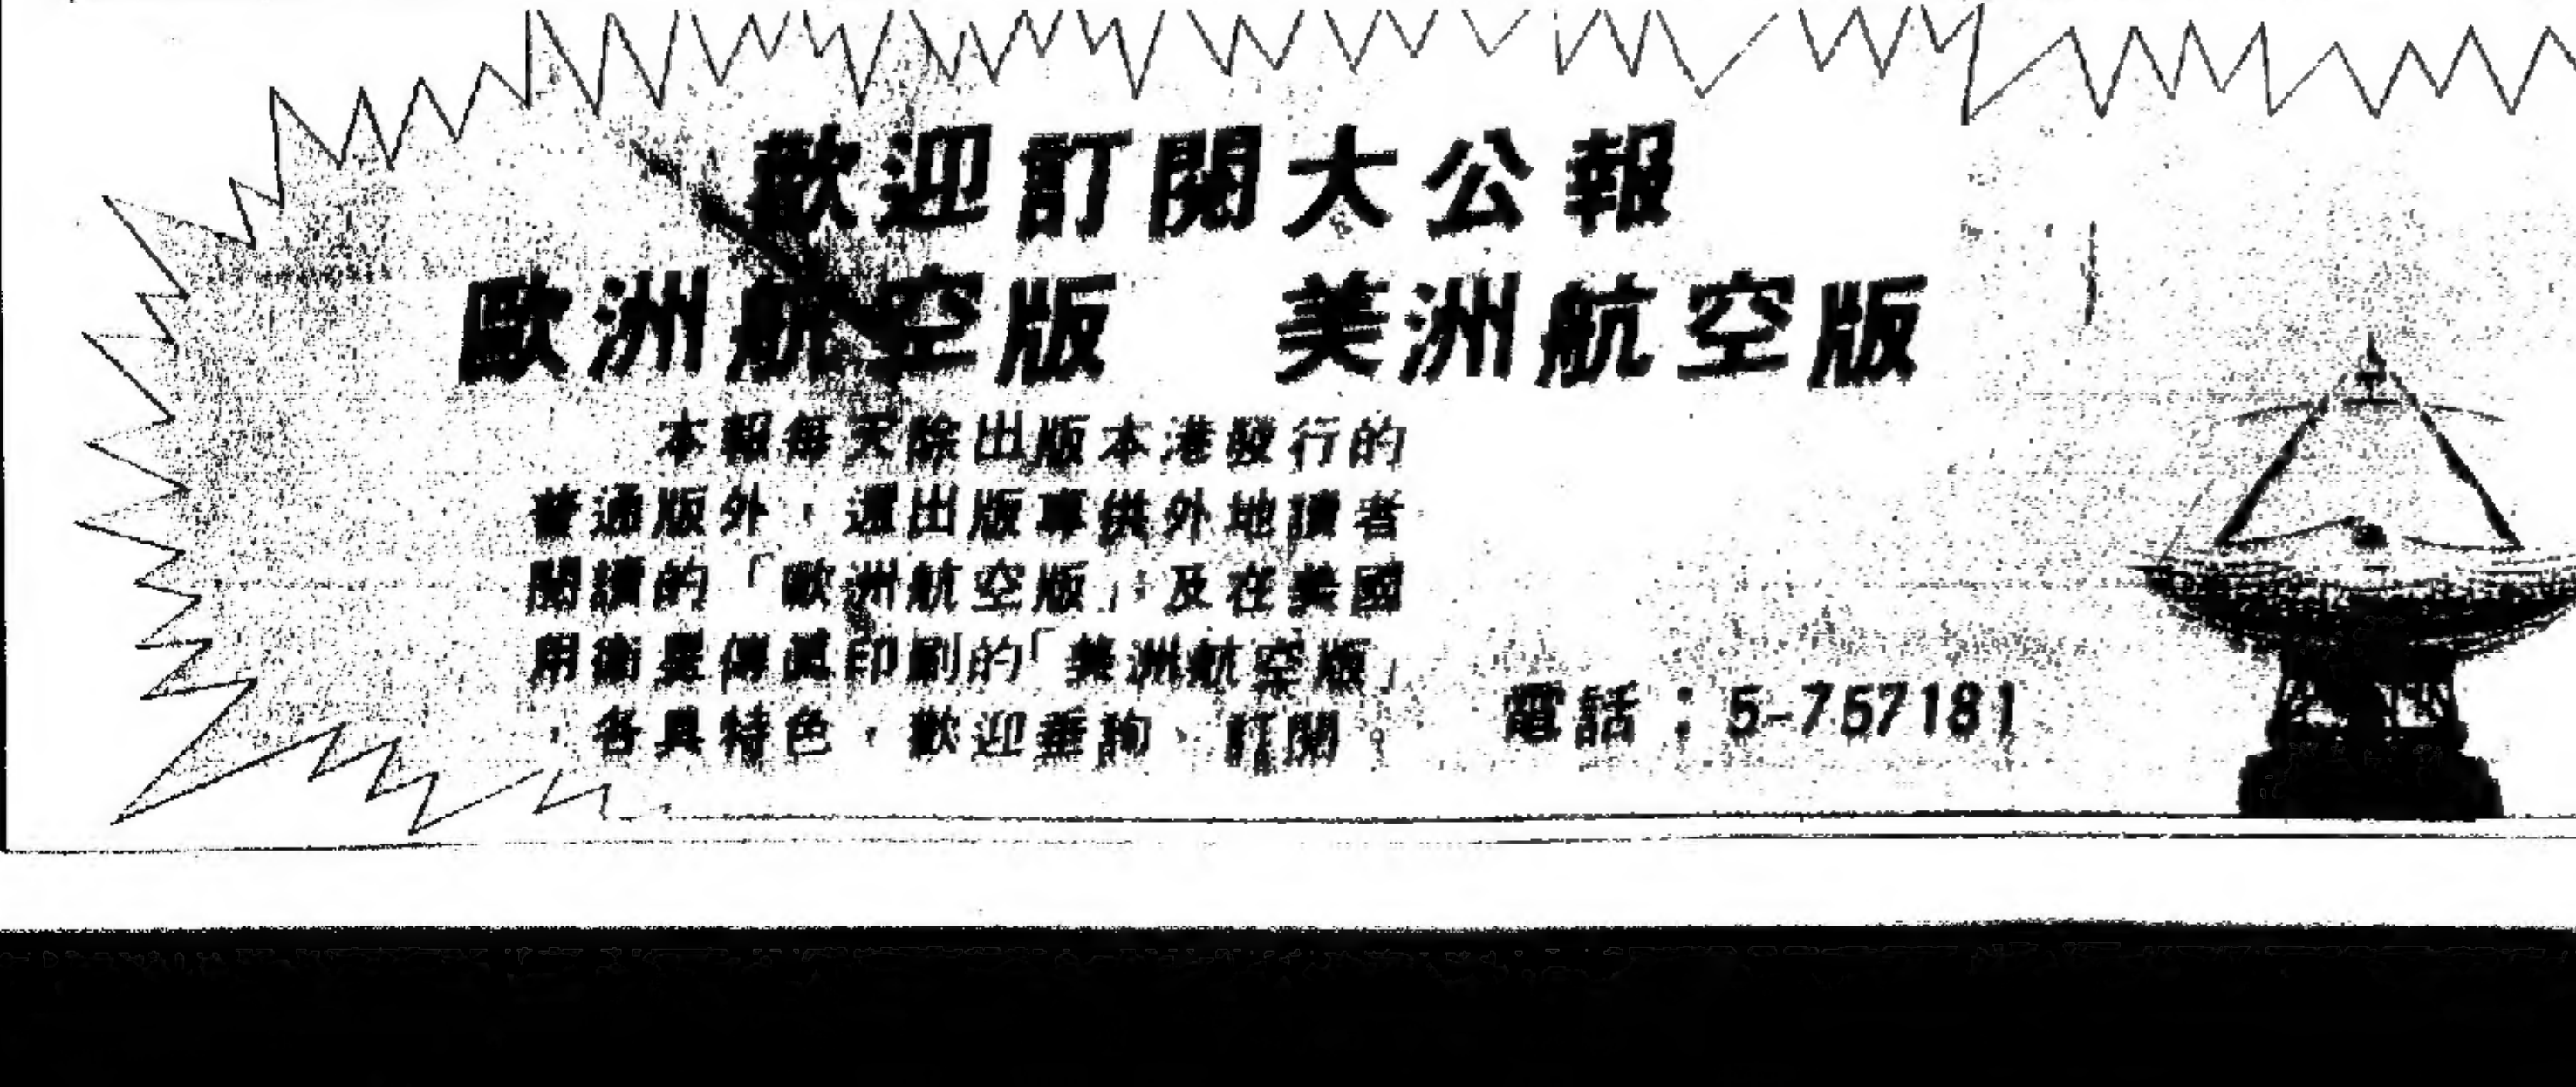 歡迎訂閱大公報
歐洲航空版　美洲航空版
本報每天除出版本港發行的
普通版外，還出版專供外地讀者
閱讀的「歐洲航空版」；及在美國
用衛星傳眞印刷的「美洲航空版」
，各具特色，歡迎垂詢、訂閱。
電話：5-757181